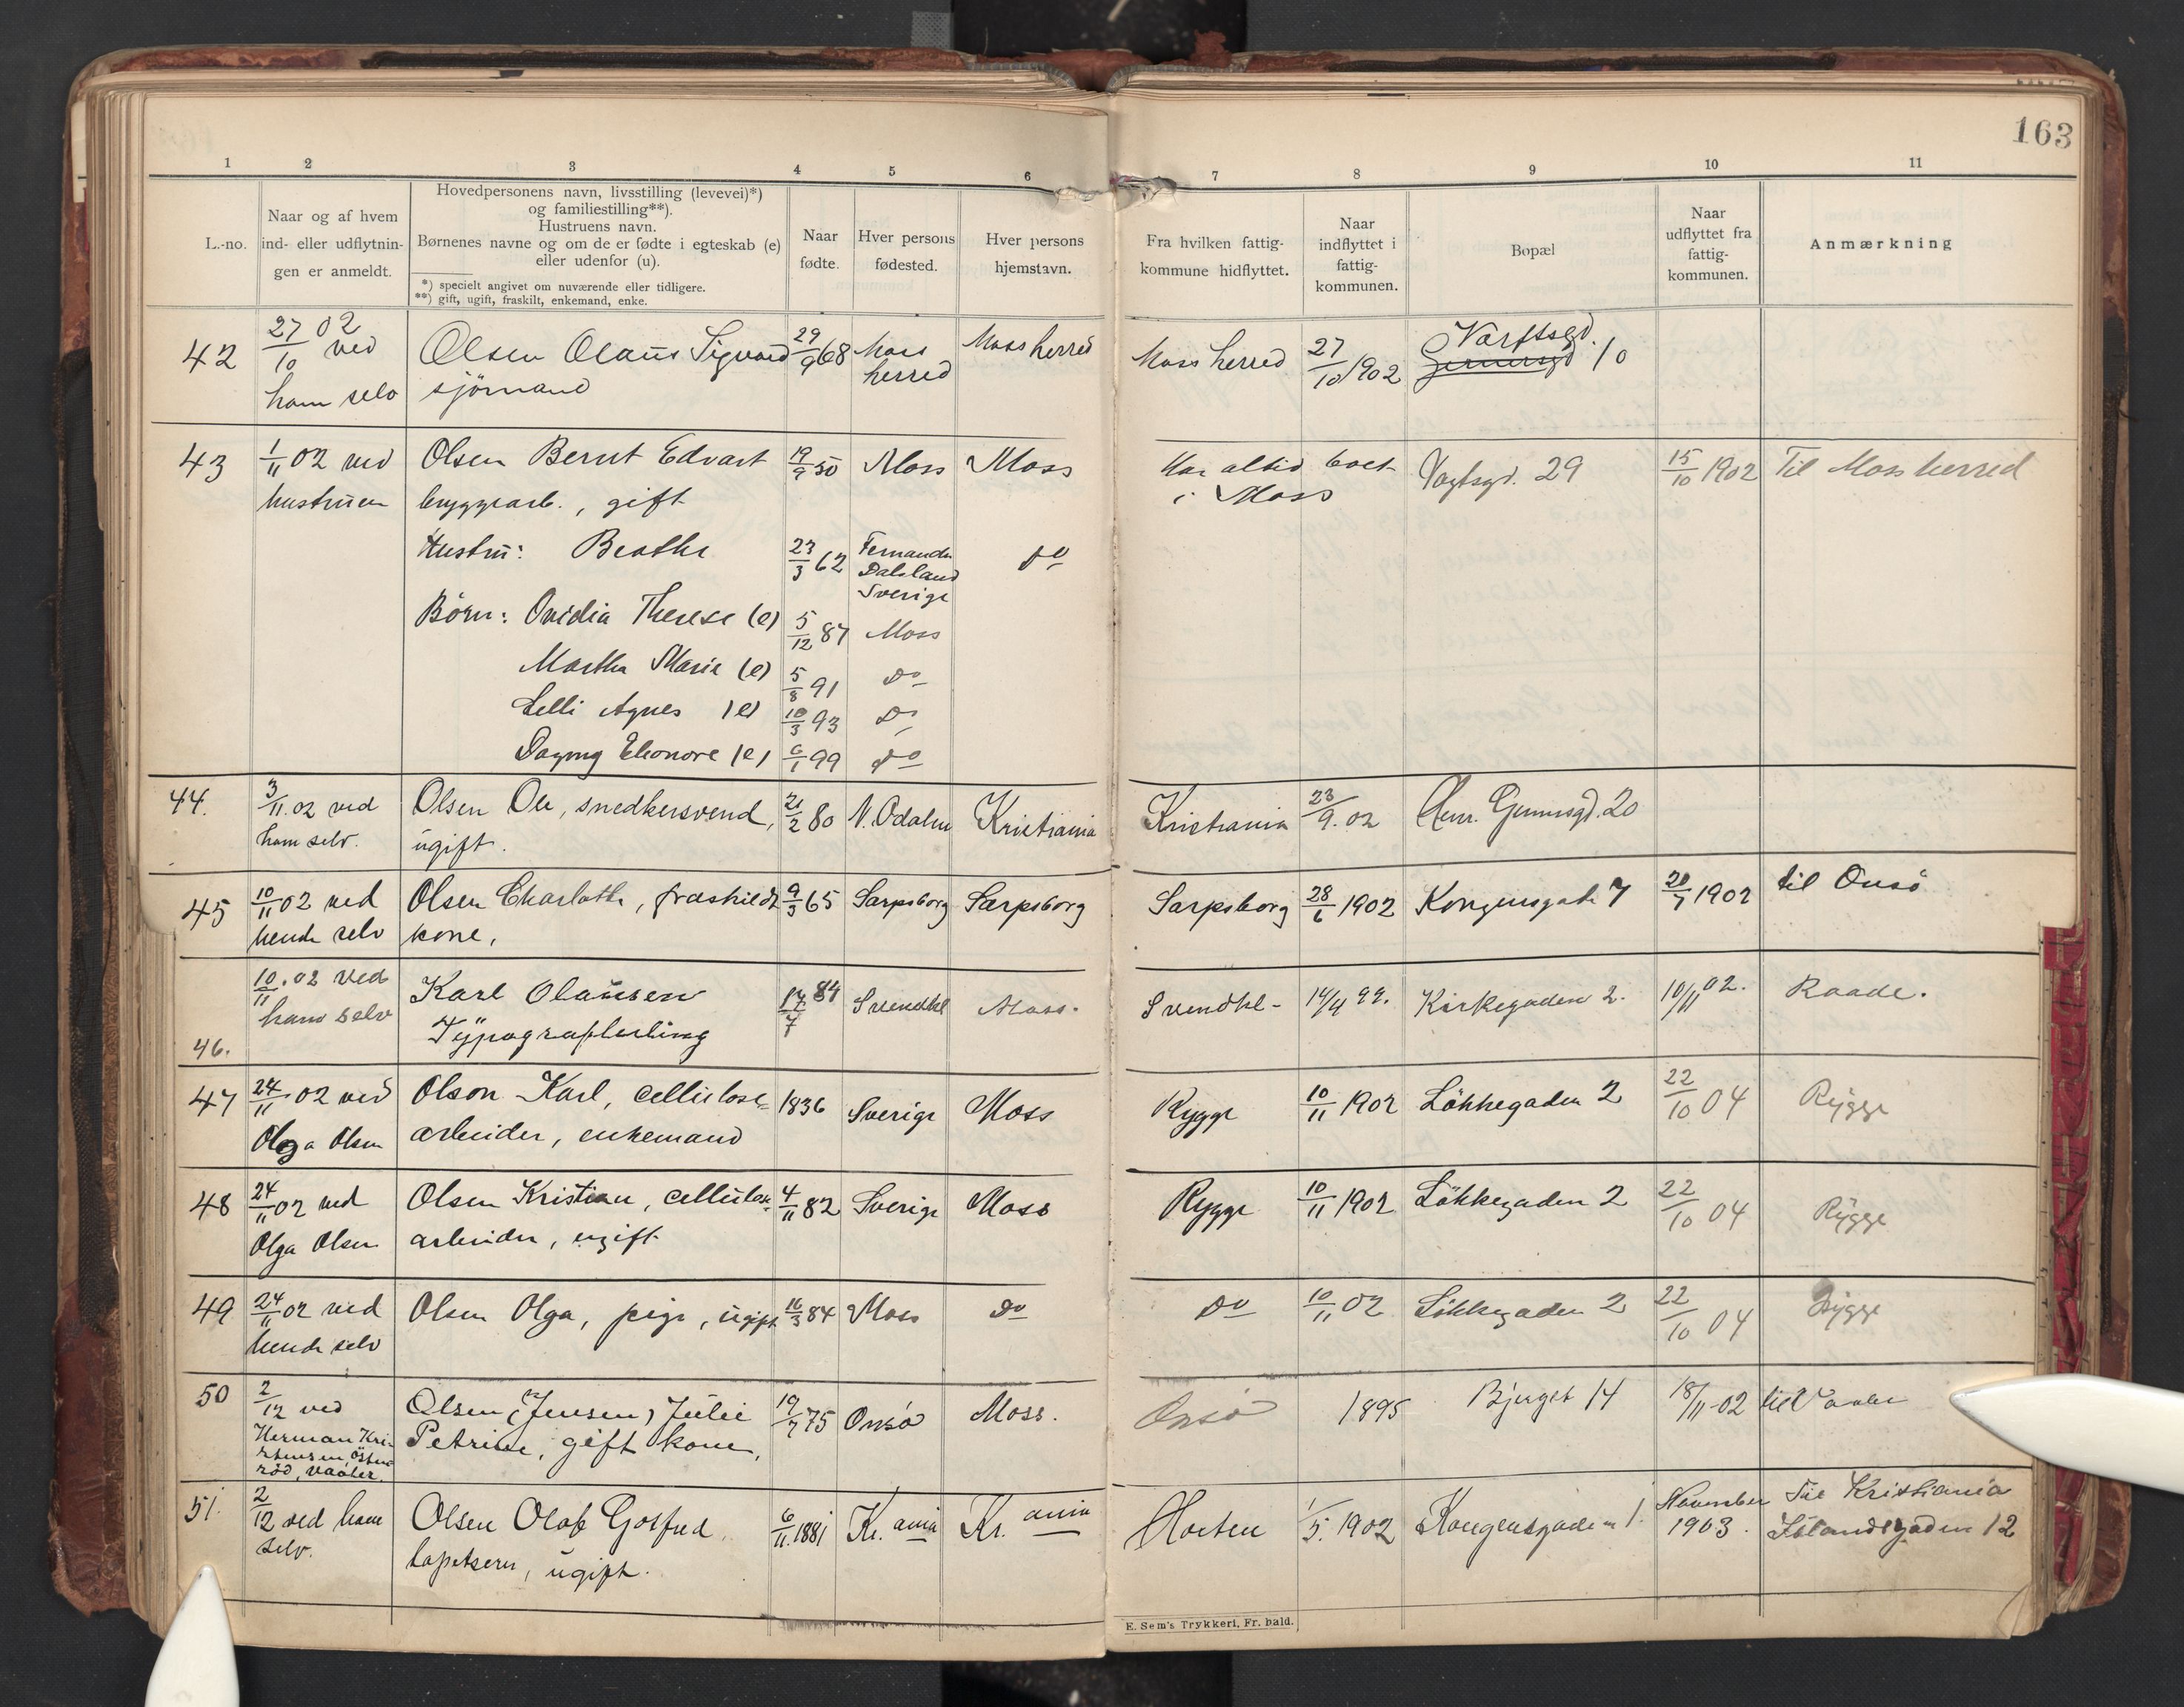 163
1 2 3 4 5 6 7 8 9 10 11
L.-no.
Naar og af hvem
ind- eller udflytnin-
gen er anmeldt.
Hovedpersonens navn, livsstilling (levevei)*)
og familiestilling**).
Hustruens navn.
Børnenes navne og om de er fødte i egteskab (e)
eller udenfor (u).
*) specielt angivet om nuværende eller tidligere.
**) gift, ugift, fraskilt, enkemand, enke.
Naar
fødte.
Hver persons
fødested.
Hver persons
hjemstavn.
Fra hvilken fattig-
kommune hidflyttet.
Naar
indflyttet i
fattig-
kommunen.
Bopæl
Naar
udflyttet fra
fattig-
kommunen.
Anmærkning
42
27/10 02
ved
ham selv
Olsen Olaus Sigvard
sjömand
29/9 68
Moss
herred
Moss herred
Moss herred
27/10 1902
Varftsgd.
10
43
1/11 02 ved
hustruen
Olsen Bernt Edvart
bryggearb., gift
19/9 50
Moss
Moss
Har altid boet
i Moss
Vogtsgd. 29
15/10 1902
Til Moss herred
Hustru: Beathe
23/3 62
Dalsland
Sverige
Do
Börn: Ovidia Therese (e) 5/12 87 Moss
Martha Marie (e) 5/8 91 Do
Lelli Agnes (e) 10/3 93 Do
Dagny Eleonore (e) 6/1 99 Do
44.
3/11.02 ved
ham selv.
Olsen Ole, snedkersvend,
ugift.
21/2 80
N. Odalen
Kristiania
Kristiania
23/9. 02
Henr. Gernersgd. 20
45
10/11 02 ved
hende selv
Olsen Charlothe, fraskildt
kone,
9/3 65
Sarpsborg
Sarpsborg
Sarpsborg
28/6 1902
Kongensgade 7
20/7 1902
til Onsö
46.
10/11.02 ved
ham selv
Karl Olaussen
Typograflærling
17/7 84
Svendkl
Moss.
Svendkl-
14/4 99.
Kirkegaden 2.
10/11 02.
Raade.
47
24/11 02 ved
Olga Olsen
Olson Karl, cellulose-
arbeider, enkemand
1836
Sverige
Moss
Rygge
10/11 1902
Lökkegaden 2
22/10 04
Rygge
48
24/11 02 ved
Olga Olsen
Olsen Kristian, cellulose-
arbeider, ugift
4/11 82
Sverige
Moss
Rygge
10/11 1902
Lökkegaden 2
22/10 04
Rygge
49
24/11 02 ved
hende selv
Olsen Olga, pige, ugift
16/3 84
Moss
Do
Do
10/11 02
Lökkegaden 2
22/10 04
Rygge
50
2/12 ved
Herman Kri-
stensen, Östen-
röd, Vaaler.
Olsen (Jensen) Julie
Petrine, gift kone,
19/7 75
Onsö
Moss.
Onsö
1895
Bjerget 14
18/11-02
til Vaaler
51.
2/12 ved ham
selv.
Olsen Olaf Gotfred
tapetserer, ugift.
6/11. 1881
Kr.ania
Kr.ania
Horten
1/5. 1902
Kongensgaden 1.
November
1903.
Til Kristiania
Islandsgaden 12
E. Sem's Trykkeri, Fr. hald.